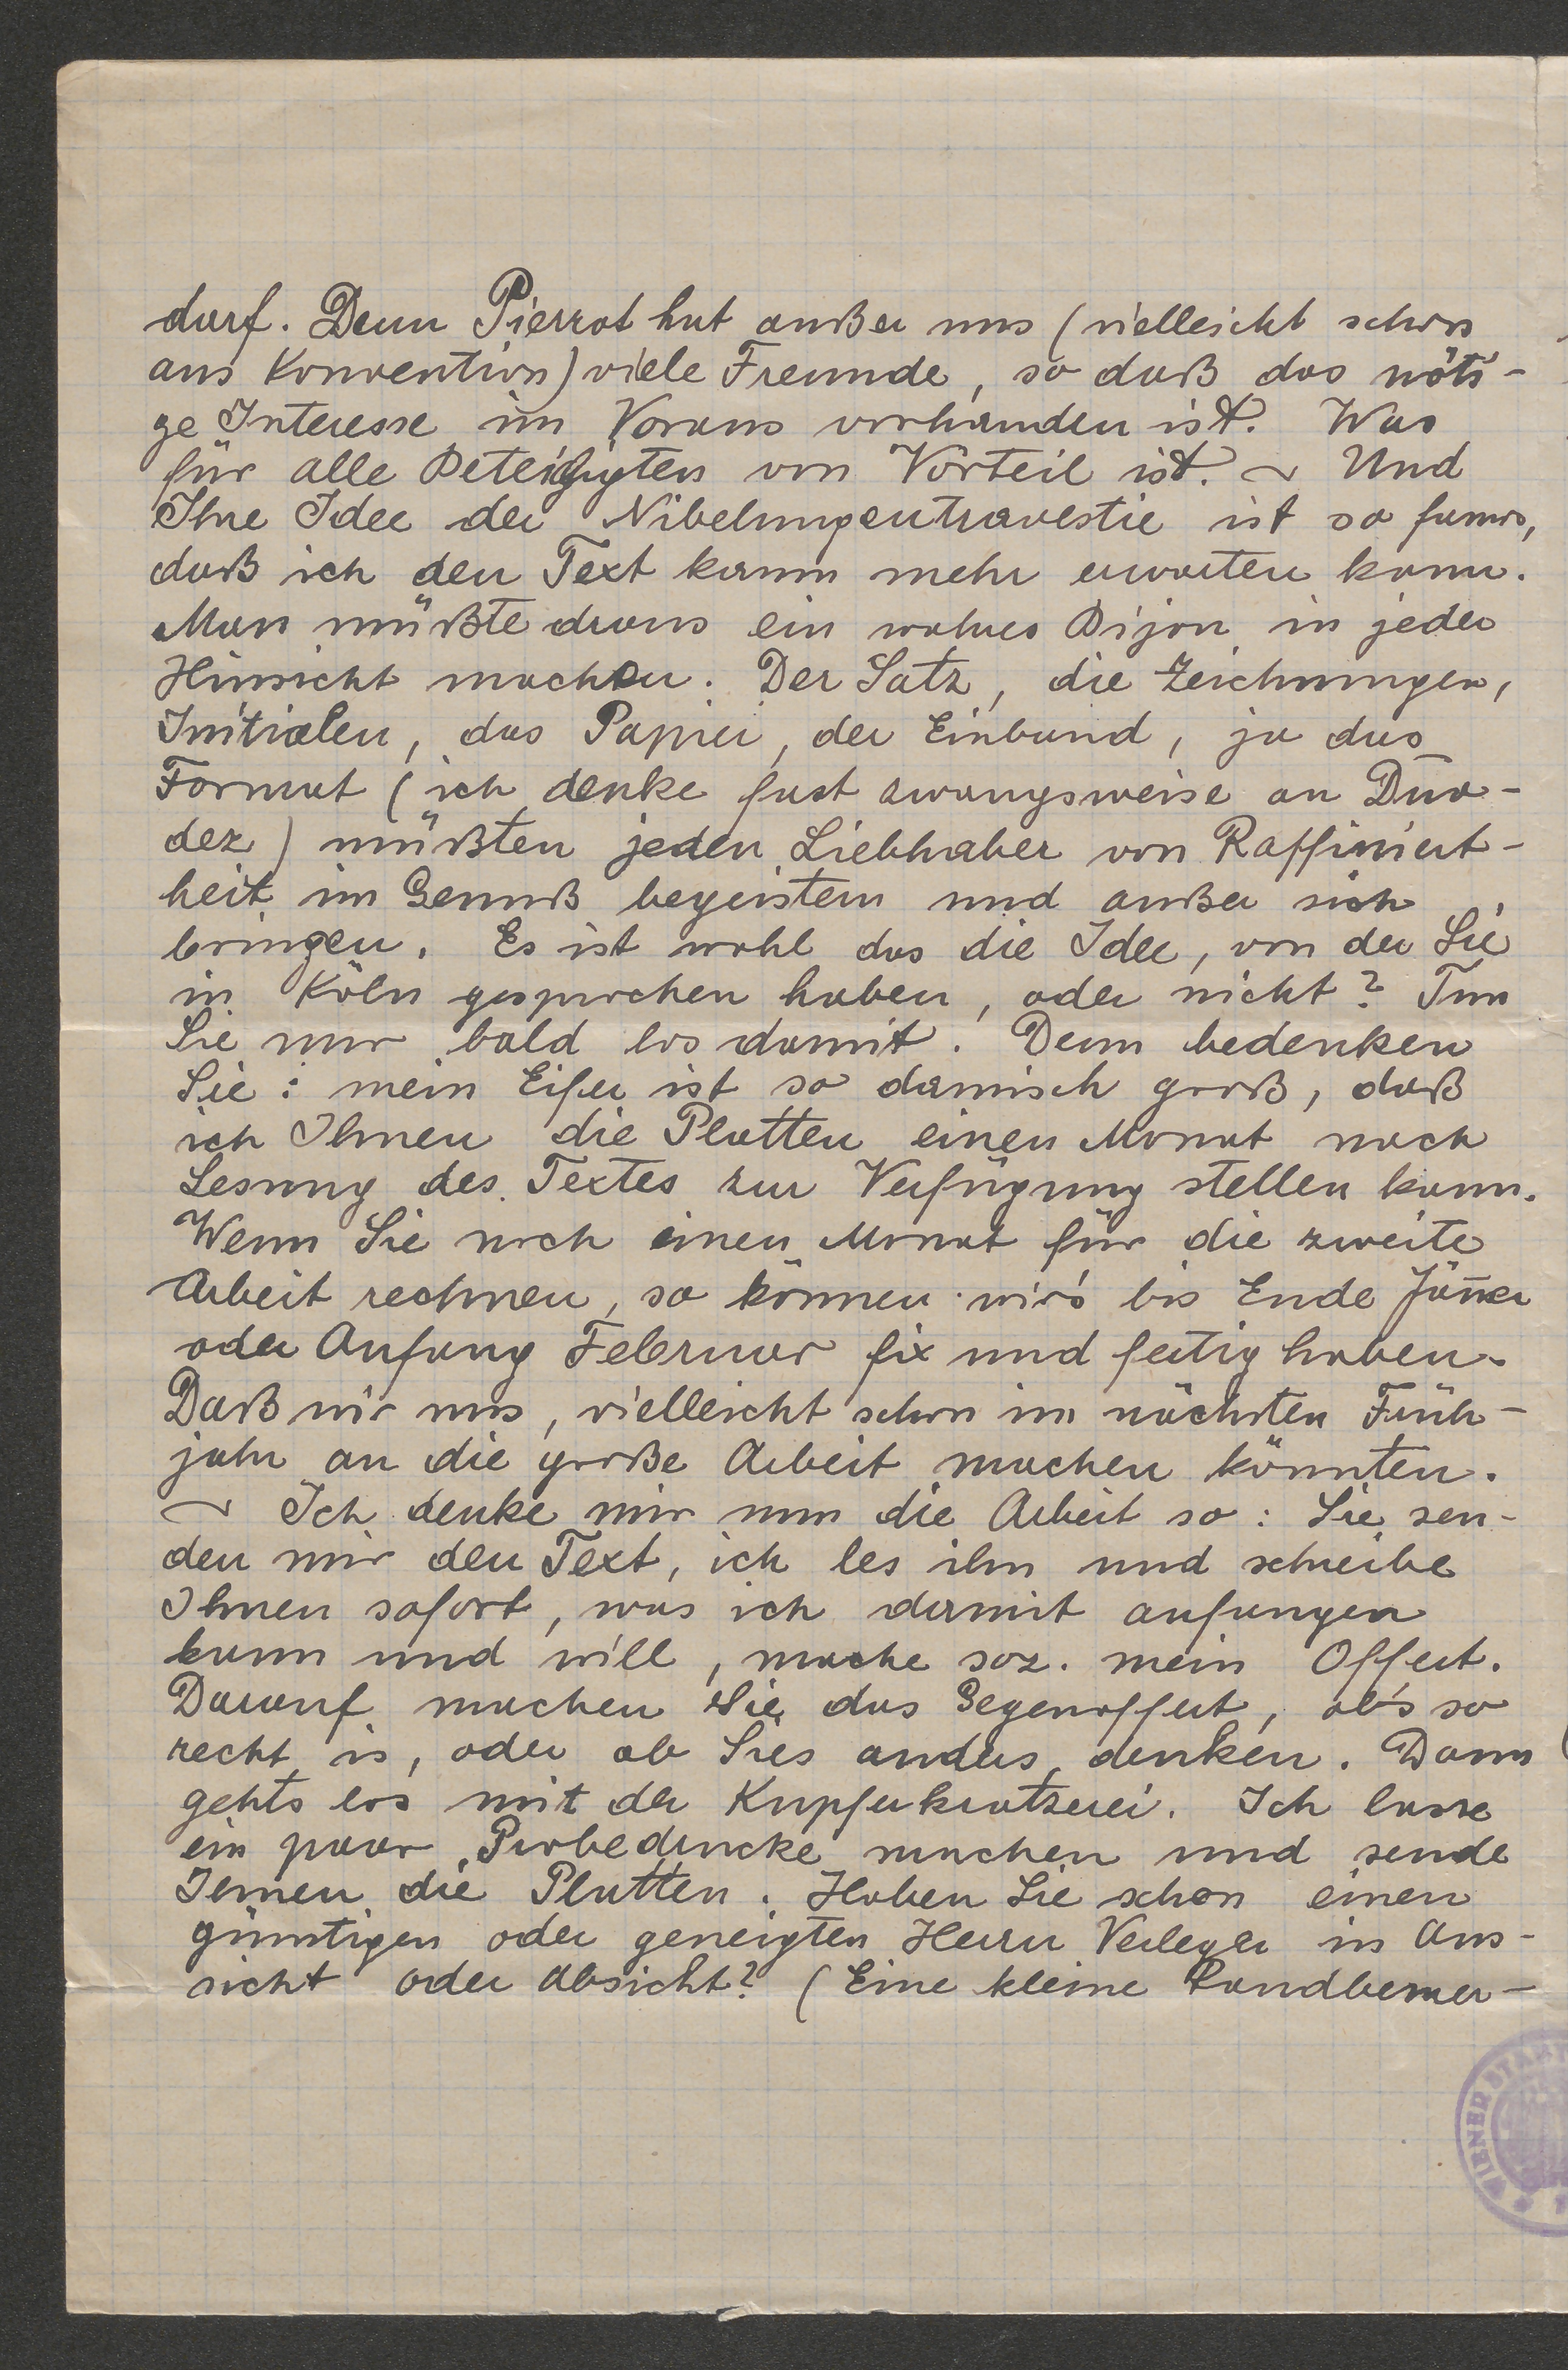 darf. Denn Pierrot hat außer uns (vielleicht schon
aus Konvention) viele Freunde, so daß das nöti-
ge Interesse im Voraus vorhanden ist. Was
für alle Beteiligten von Vorteil ist. ~ Und
Ihre Idee der Nibelungentravestie ist so famos,
daß ich den Text kaum mehr erwarten kann.
Man müßte draus ein wahres Bijon in jeder
Hinsicht machen. Der Satz, die Zeichnungen,
Initialen, das Papier, der Einband, ja das
Format (ich denke fast zwangsweise an Duo-
dez) müßten jeden Liebhaber von Raffiniert-
heit im Genuß begeistern und außer sich
bringen. Es ist wohl das die Idee, von der Sie
in Köln gesprochen haben, oder nicht? Tun
Sie nur bald los damit. Denn bedenken
Sie: mein Eifer ist so damisch groß, daß
ich Ihnen die Platten einen Monat nach
Lesung des Textes zur Verfügung stellen kann.
Wenn Sie noch einen Monat für die zweite
Arbeit rechnen, so können wir's bis Ende Jän̄er
oder Anfang Februar fix und fertig haben.
Daß wir uns, vielleicht schon im nächsten Früh-
jahr an die große Arbeit machen könnten.
~ Ich denke mir nun die Arbeit so: Sie sen-
den mir den Text, ich les ihn und schreibe
Ihnen sofort, was ich damit anfangen
kann und will, mache soz. mein Offert.
Darauf machen Sie das Gegenoffert, ob's so
recht is, oder ob Sies anders denken. Dann
gehts los mit der Kupferkratzerei. Ich lasse
ein paar Probedrucke machen und sende
Ihnen die Platten. Haben Sie schon einen
günstigen oder geneigten Herrn Verleger in Aus-
sicht oder Absicht? (Eine kleine Randbemer-
WIENER STA